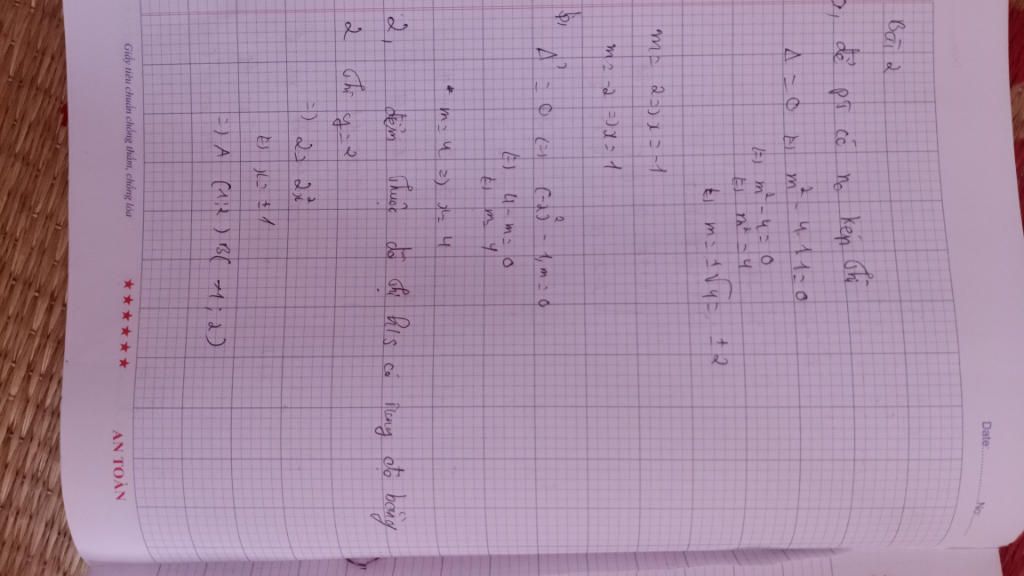 Date: No.
Bài 2
a, để pt có no kép thì
Δ = 0 (=) m² - 4.1.1 = 0
(=) m² - 4 = 0
(=) m² = 4
(=) m = ±√4 = ±2
m = 2 => x = -1
m = -2 => x = 1
b, Δ' = 0 (=) (-2)² - 1.m = 0
(=) 4 - m = 0
(=) m = 4
* m = 4 => x = 4
2, điểm thuộc đồ thị h/s có tung độ bằng
2 thì y = 2
=) 2 = 2x²
(=) x = ±1
=) A (1; 2) B( -1 ; 2)
Giấy tiêu chuẩn chống thấm, chống lóa ★★★★★★★ AN TOÀN